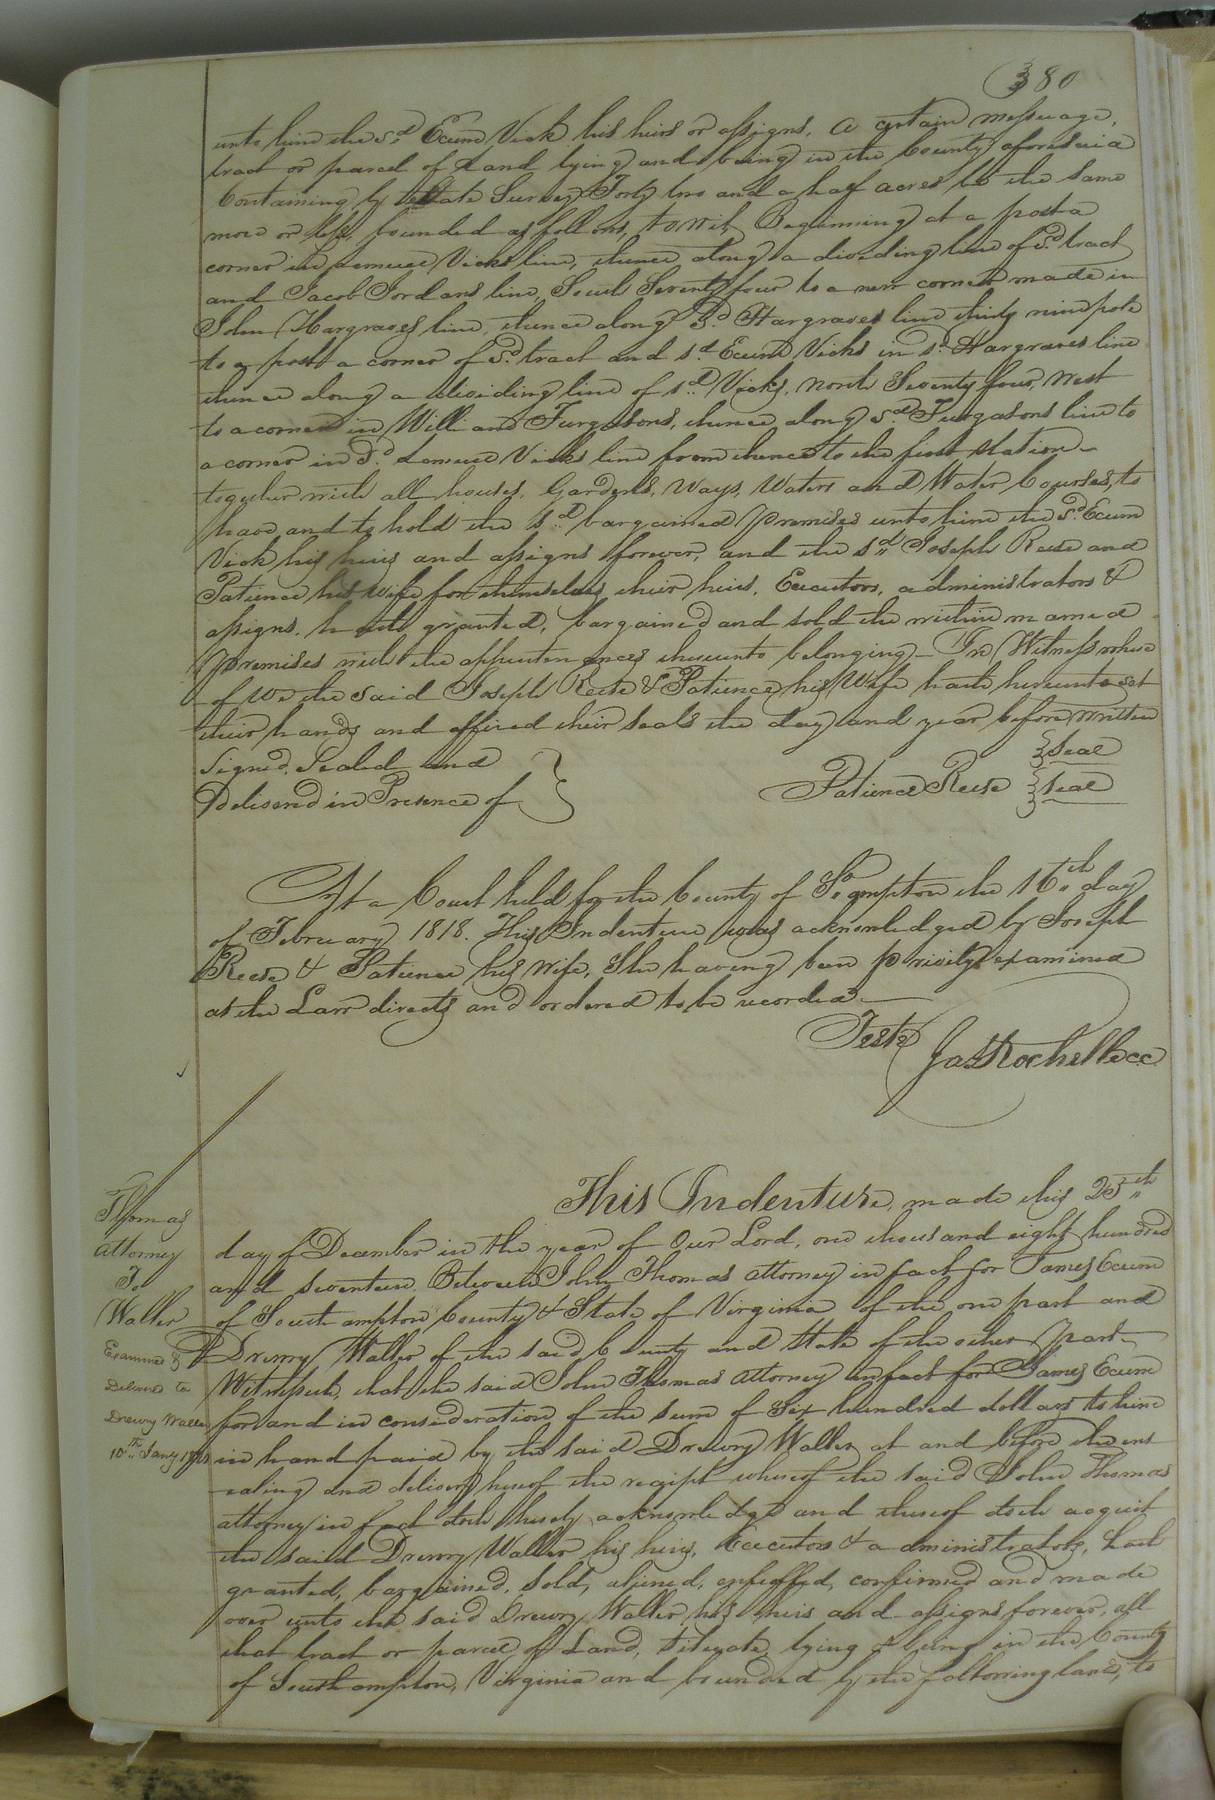 380
unto him the sd. Exum Vick his heirs or assigns, a certain messuage,
tract or parcel of Land lying and being in the County aforesaid
Containing by late Survey Forty two and a half acres be the same
more or less, bounded as follows, to wit, Beginning at a post a
corner in Lemuel Vicks line, thence along a dividing line of sd. tract
and Jacob Jordans line South Seventy four to a new corner made in
John Hargraves line, thence along sd. Hargraves line thirty nine pole
to a post a corner of sd. tract and sd. Exum Vicks in sd. Hargraves line
thence along a dividing line of sd. Vicks, north Seventy four, west
to a corner in William Furgasons, thence along sd. Furgasons line to
a corner in sd. Lemuel Vicks line from thence to the first station
together with all houses, Gardens, ways, waters and Water Courses, to
have and to hold the sd. bargained premises unto him the sd. Exum
Vick his heirs and assigns forever, and the sd. Joseph Reese and
Patience his wife for themselves their heirs, Executors, administrators &
assigns, hath granted, bargained and sold the within named
premises with the appurtenances thereunto belonging - In Witness where
of we the said Joseph Reese & Patience his Wife hath hereunto set
their hands and affixed their seals the day and year before written
Signed, Sealed and
Delivered in Presence of
Seal
Patience Reese Seal
At a Court held for the County of So.ampton the 16th. day
of February 1818. This Indenture was acknowledged by Joseph
Reese & Patience his wife, She having been privily examined
as the Law directs and ordered to be recorded
Teste
Jas Rochelle cc
Thomas
Attorney
To
Waller
Examined &
Delivered to
Drewry Waller
10th Jany
This Indenture, made this 25th
day of December in the year of Our Lord, one thousand eight hundred
and seventeen Between John Thomas attorney in fact for James Exum
of Southampton County & State of Virginia of the one part and
Drewry Waller of the said County and State of the other part
Witnesseth, that the said John Thomas attorney in fact for James Exum
for and in consideration of the sum of Six hundred dollars to him
in hand paid by the said Drewry Waller at and before the ens
ealing and delivery hereof the receipt whereof the said John Thomas
attorney in fact doth hereby acknowledge and thereof doth acquit
the said Drewry Waller his heirs, Executors & administrators, hath
granted, bargained, sold, aliened, enfeoffed, confirmed and made
over unto the said Drewry Waller his heirs and assigns forever, all
that tract or parcel of Land, situate, lying & being in the County
of Southampton, Virginia and bounded by the following lines, to